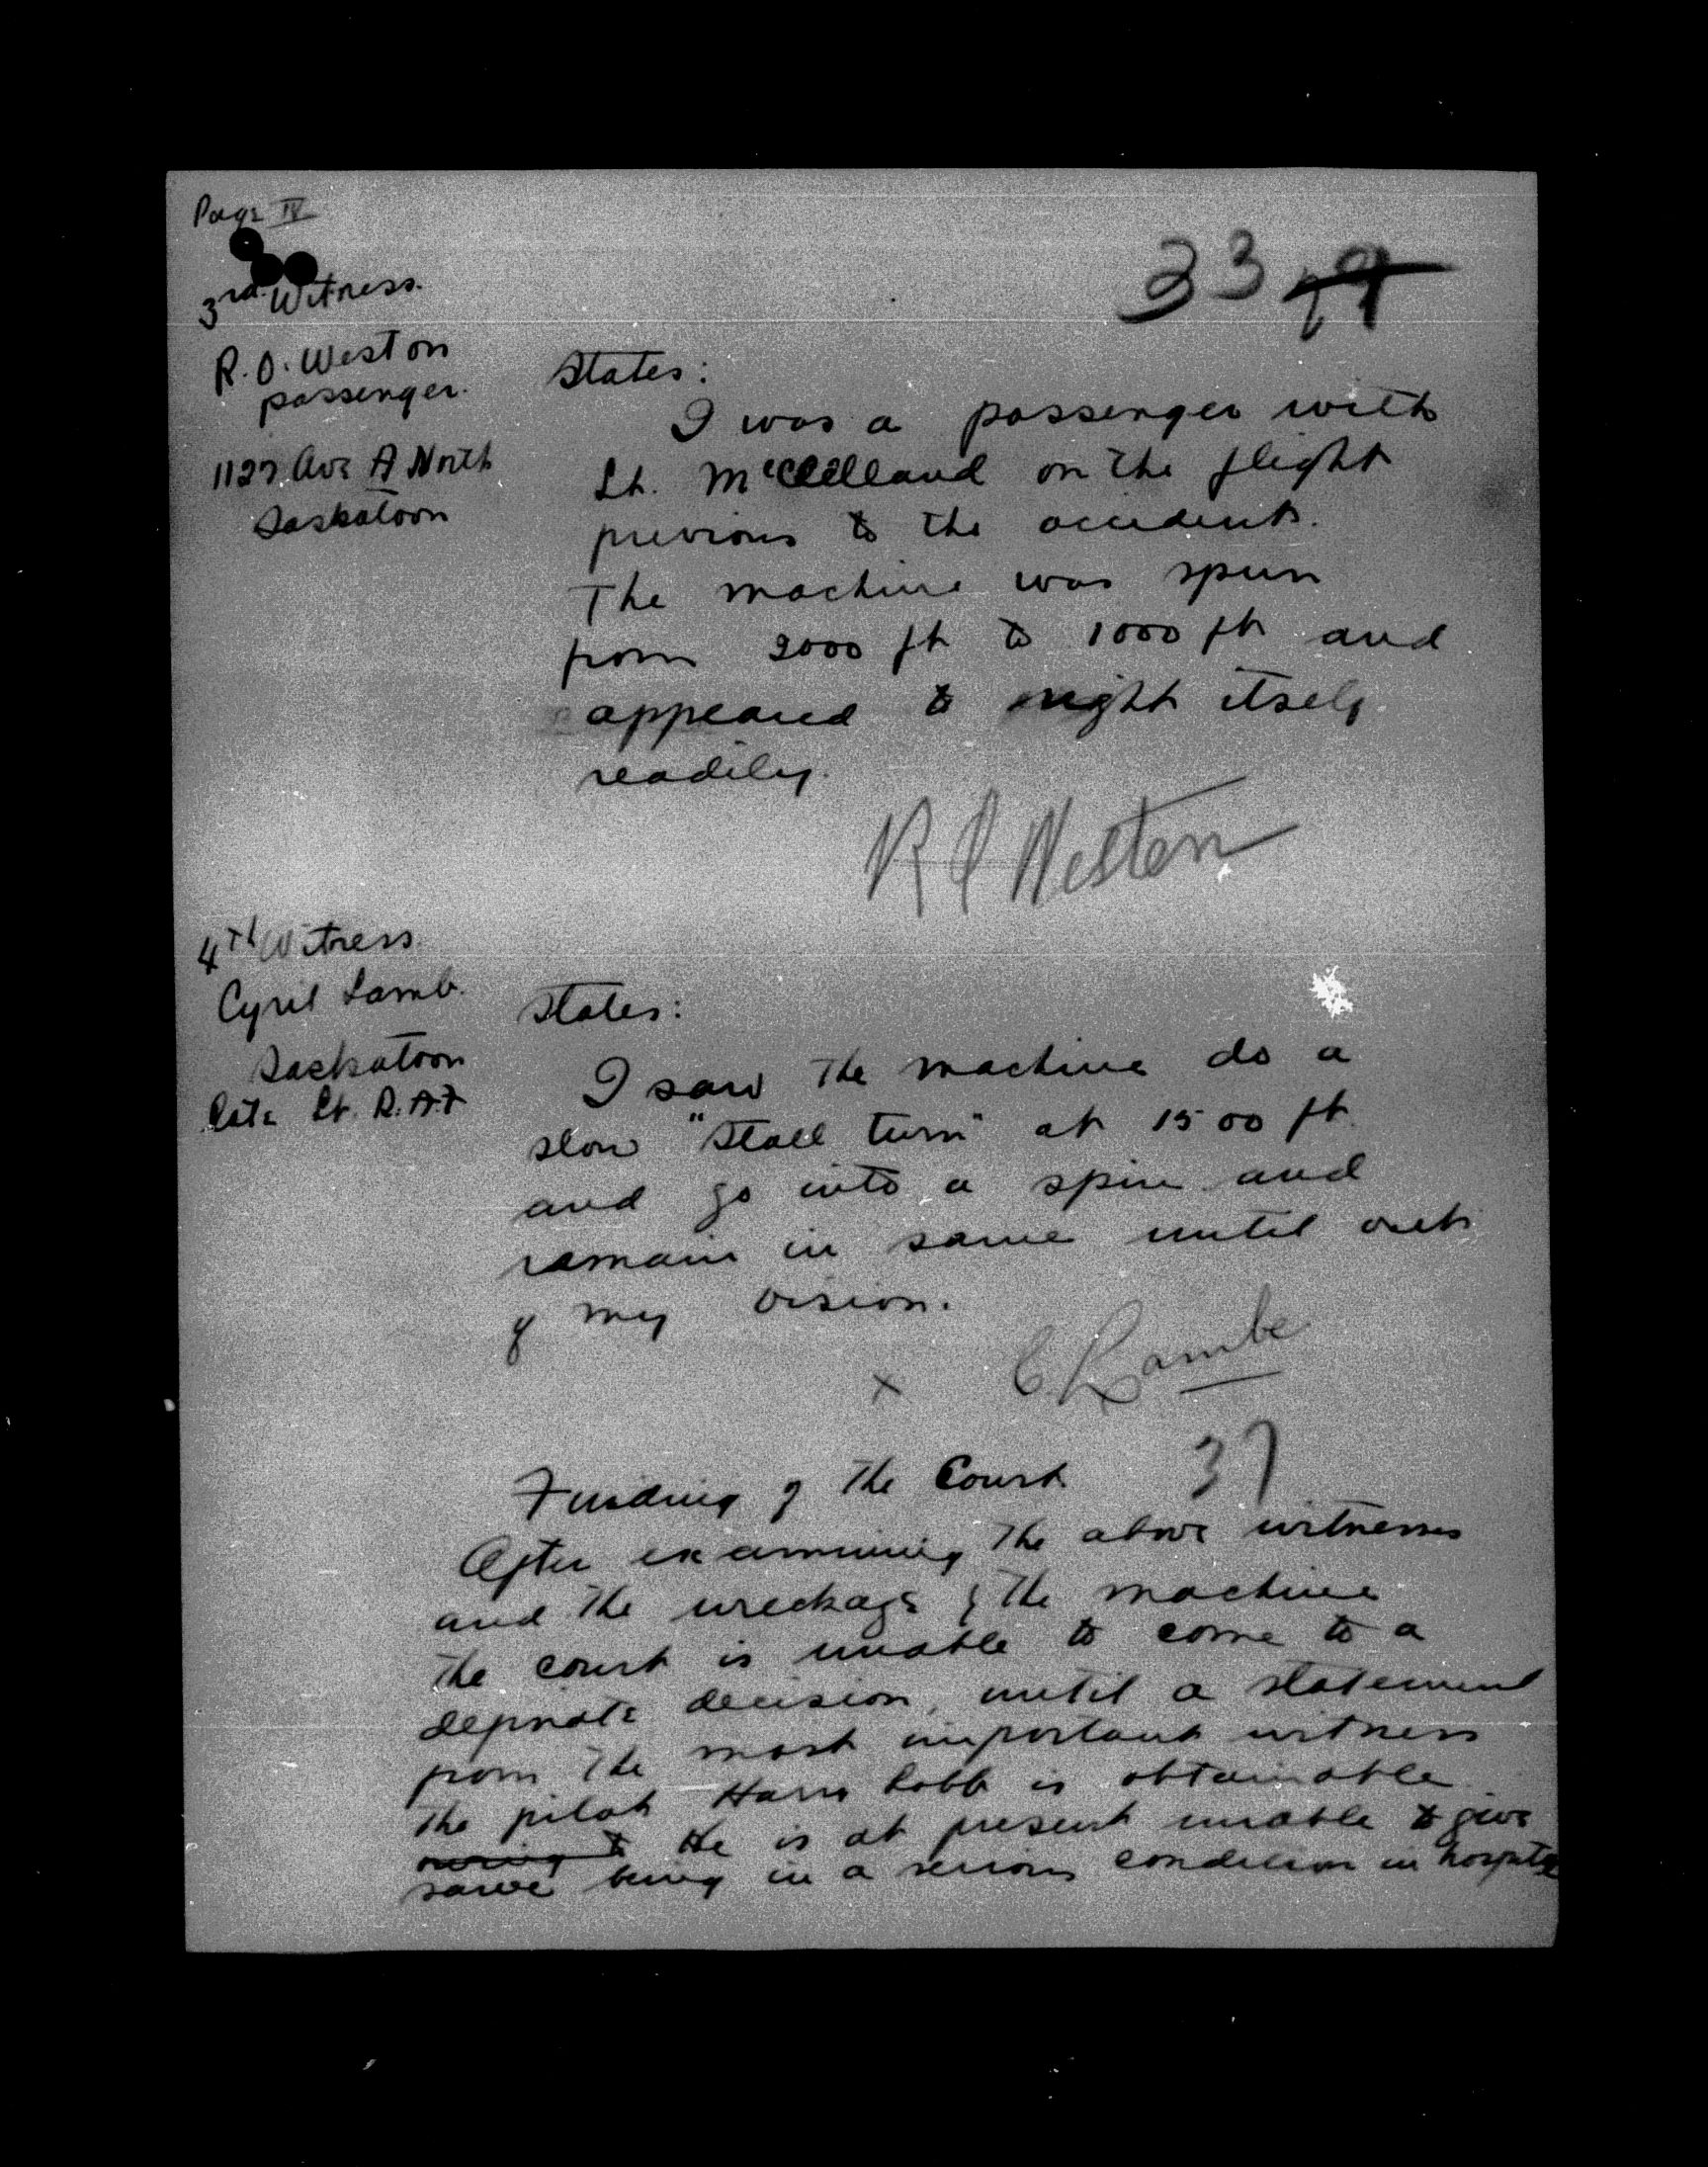 Page IV
33
3rd Witness.
R. O. Weston
passenger.
1127 Ave A North
Saskatoon
States:
I was a passenger with
Lt. McClelland on the flight
previous to the accident.
The machine was spun
from 2000 ft to 1000 ft and
appeared to right itself
readily.
R O Weston
4th Witness
Cyril Lamb.
Saskatoon
late Lt. R.A.F
States:
I saw the machine do a
slow "Stall turn" at 1500 ft.
and go into a spin and
remain in same until out
of my vision.
x C Lambe
37
Finding of the Court
After examining the above witnesses
and the wreckage of the machine
the court is unable to come to a
definate decision, until a statement
from the most important witness
the pilot Harry Lobb is obtainable
owing to He is at present unable to give
same being in a serious condition in hospital